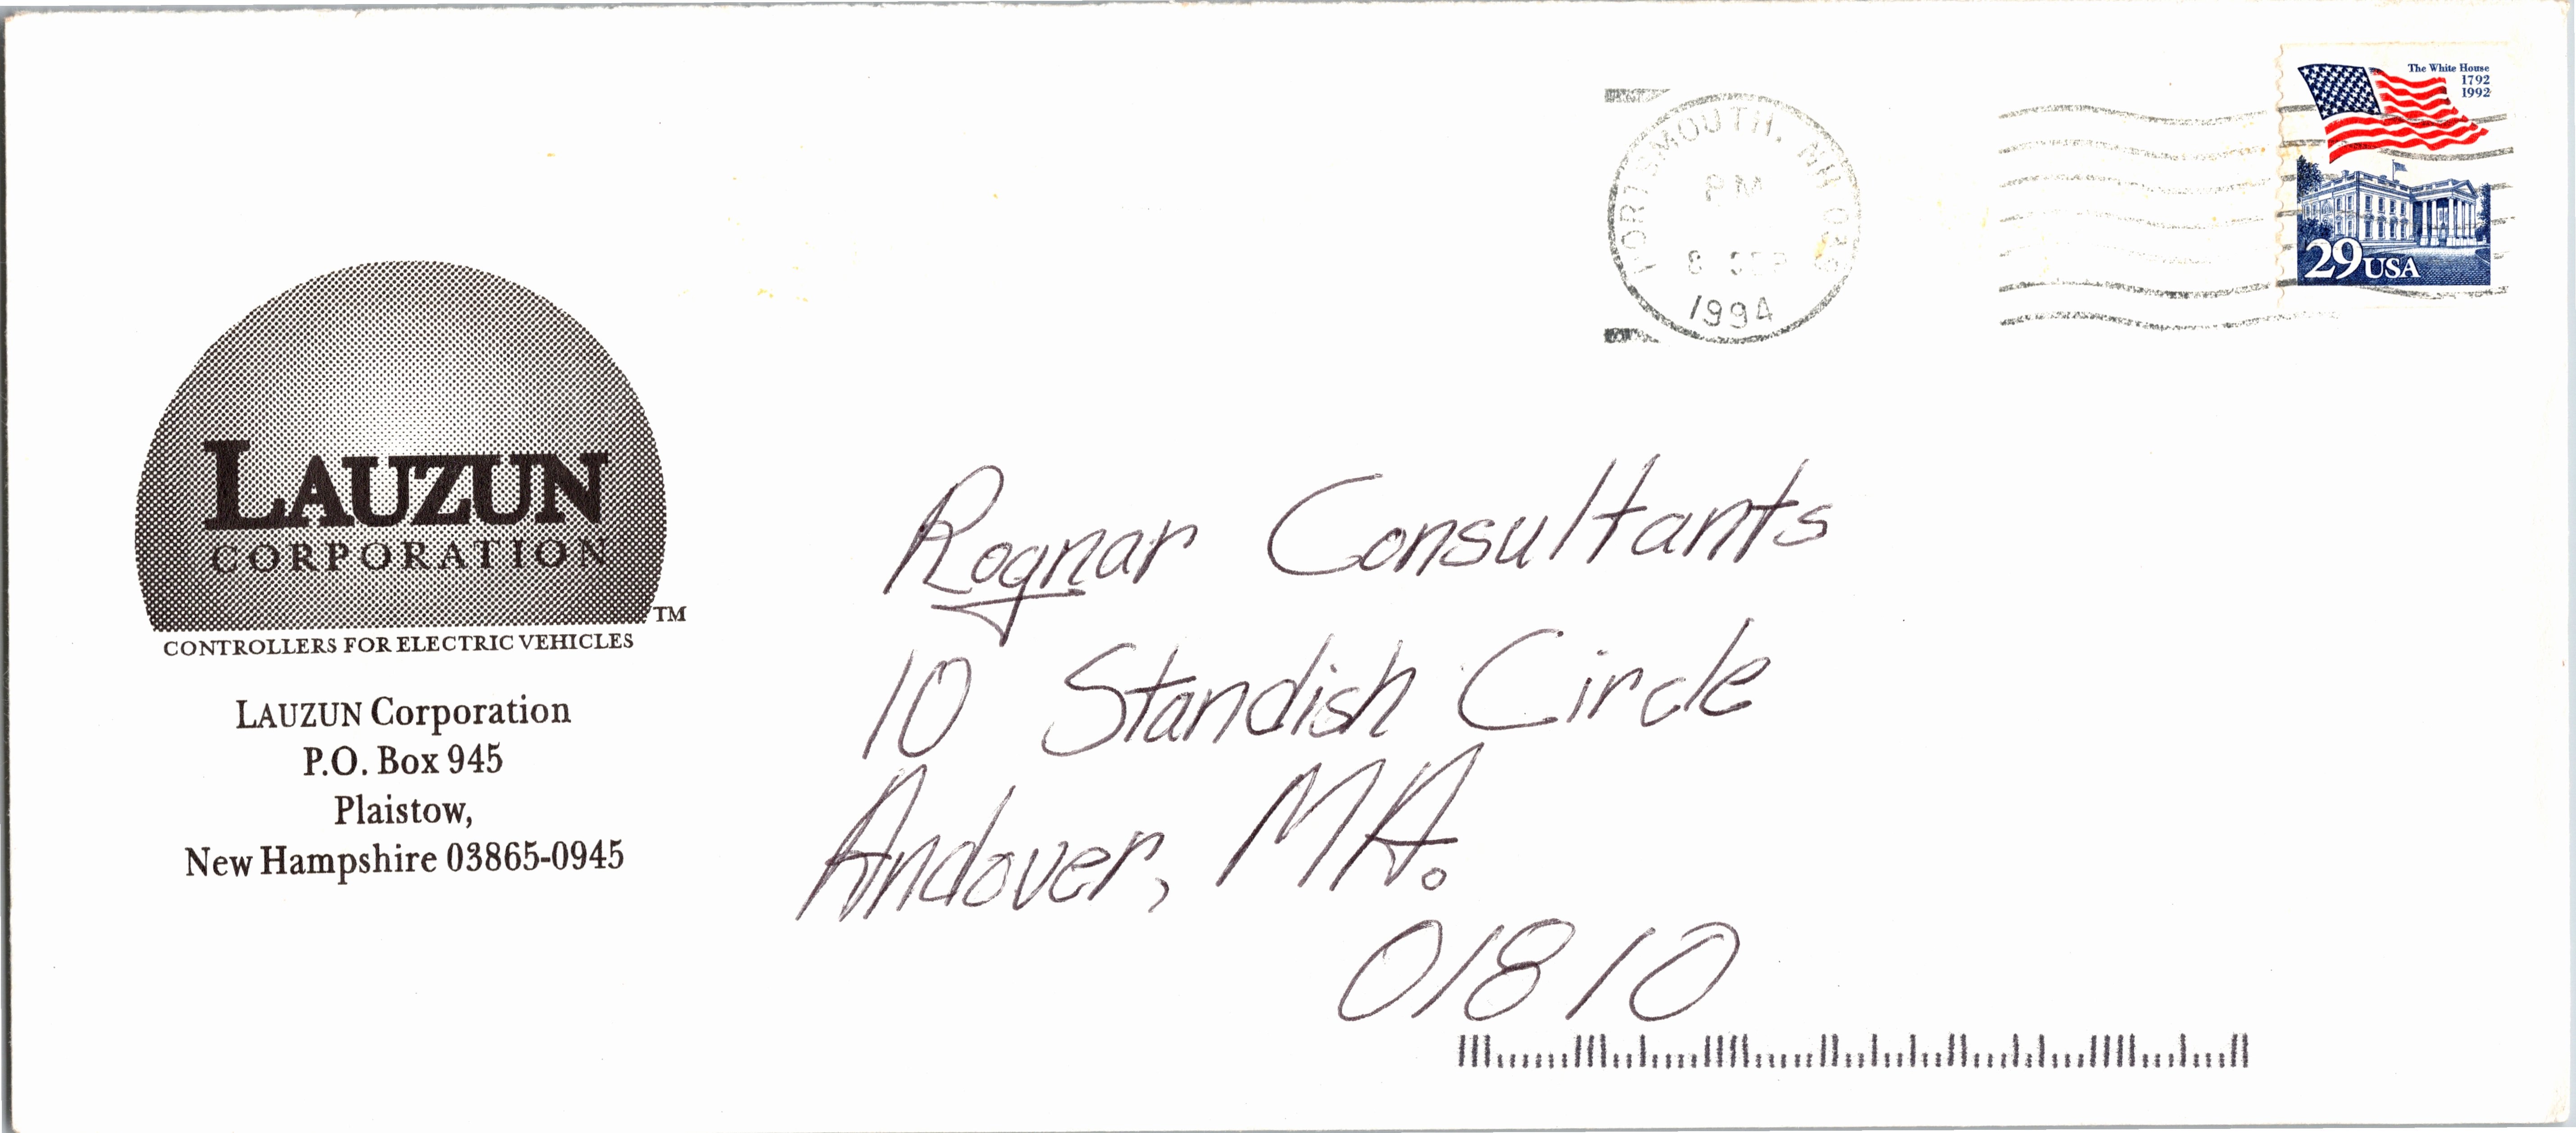 The White House
1792
1992
29 USA
PORTSMOUTH, NH
PM
8 SEP
1994
LAUZUN
CORPORATION
TM
CONTROLLERS FOR ELECTRIC VEHICLES
LAUZUN Corporation
P.O. Box 945
Plaistow,
New Hampshire 03865-0945
Rognar Consultants
10 Standish Circle
Andover, MA.
01810